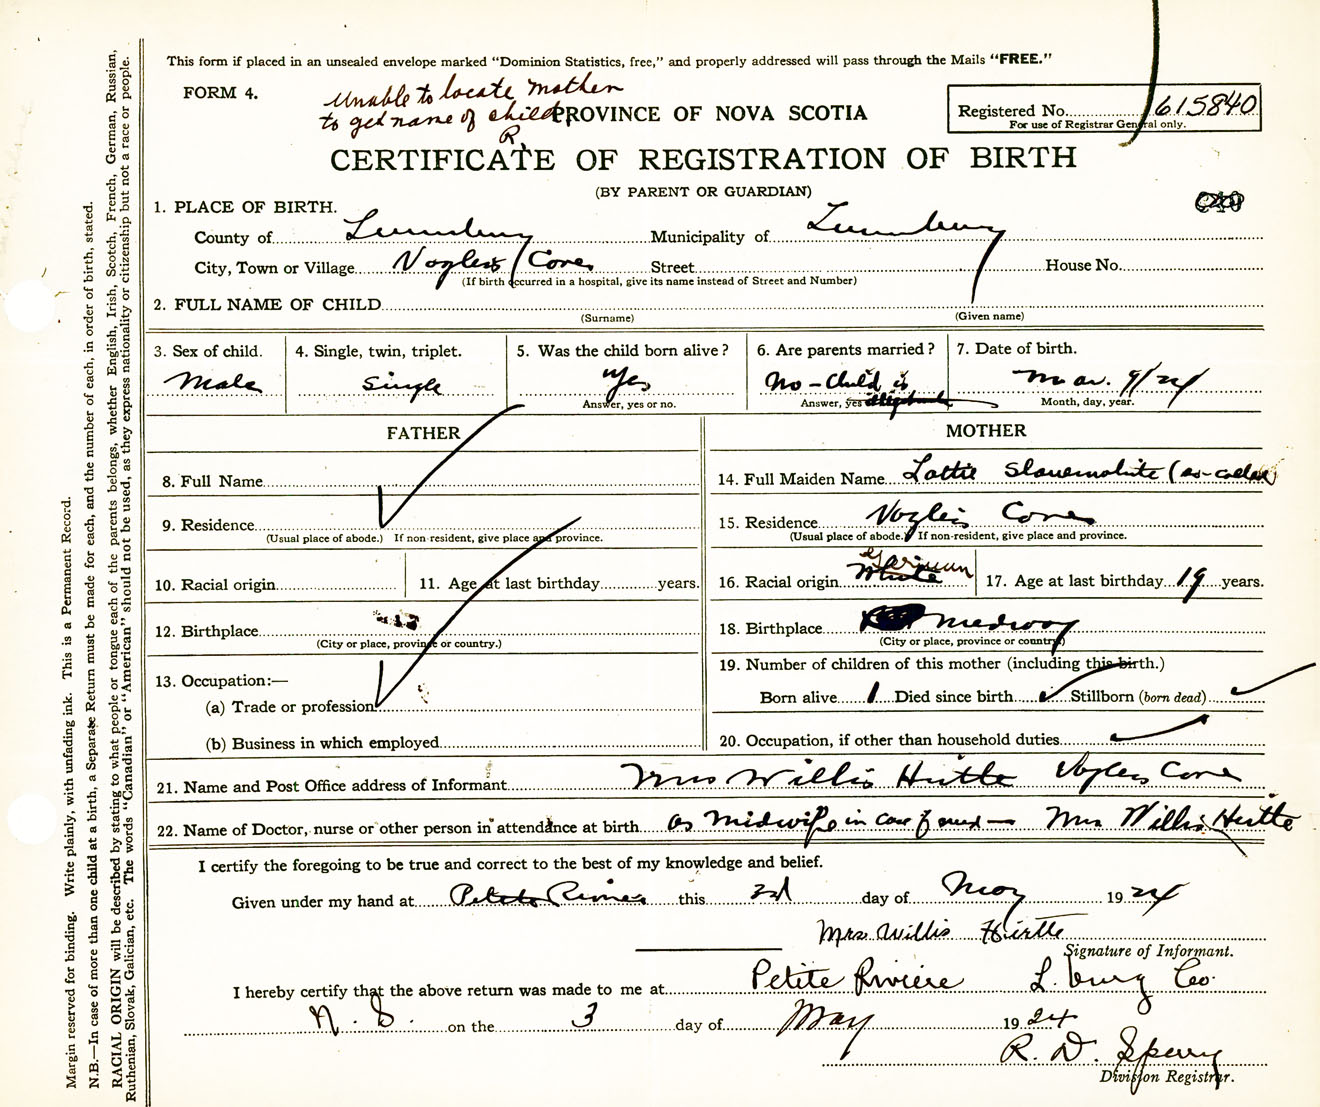 This form if placed in an unsealed envelope marked “Dominion Statistics, free,” and properly addressed will pass through the Mails “FREE.”
FORM 4.
Unable to locate mother
to get name of child,
R.
PROVINCE OF NOVA SCOTIA
Registered No. 615840
For use of Registrar General only.
CERTIFICATE OF REGISTRATION OF BIRTH
(BY PARENT OR GUARDIAN)
1. PLACE OF BIRTH.
County of Lunenburg Municipality of Lunenburg
City, Town or Village Voglers Cove Street House No.
(If birth occurred in a hospital, give its name instead of Street and Number)
2. FULL NAME OF CHILD
(Surname) (Given name)
3. Sex of child. 4. Single, twin, triplet. 5. Was the child born alive? 6. Are parents married? 7. Date of birth.
Male Single Yes No - Child is Mar. 9/24
Answer, yes or no. Answer, yes Month, day, year.
FATHER
8. Full Name
9. Residence
(Usual place of abode.) If non-resident, give place and province.
10. Racial origin 11. Age at last birthday years.
12. Birthplace
(City or place, province or country.)
13. Occupation:—
(a) Trade or profession
(b) Business in which employed
MOTHER
14. Full Maiden Name Lottie (so-called
15. Residence Voglers Cove
(Usual place of abode.) If non-resident, give place and province.
16. Racial origin White German 17. Age at last birthday 19 years.
18. Birthplace Medway
(City or place, province or country)
19. Number of children of this mother (including this birth.)
Born alive 1 Died since birth Stillborn (born dead)
20. Occupation, if other than household duties
21. Name and Post Office address of Informant Mrs Willis Hirtle Voglers Cove
22. Name of Doctor, nurse or other person in attendance at birth as midwife in case of need — Mrs Willis Hirtle
I certify the foregoing to be true and correct to the best of my knowledge and belief.
Given under my hand at Petite Riviere this 3d day of May 1924
Mrs Willis Hirtle
Signature of Informant.
I hereby certify that the above return was made to me at Petite Riviere L.burg Co.
N. S. on the 3 day of May 1924
R. D. Sperry
Division Registrar.
Margin reserved for binding. Write plainly, with unfading ink. This is a Permanent Record.
N.B.—In case of more than one child at a birth, a Separate Return must be made for each, and the number of each, in order of birth, stated.
RACIAL ORIGIN will be described by stating to what people or tongue each of the parents belongs, whether English, Irish, Scotch, French, German, Russian,
Ruthenian, Slovak, Galician, etc. The words “Canadian” or “American” should not be used, as they express nationality or citizenship but not a race or people.